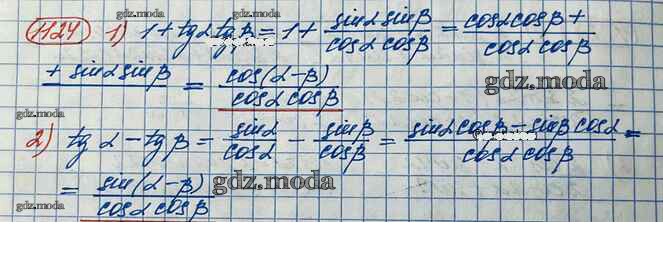 1124 1) 1 + tgα tgβ = 1 + sinα sinβ / cosα cosβ = cosα cosβ + / cosα cosβ
gdz.moda
+ sinα sinβ = cos(α-β) / cosα cosβ
gdz.moda
gdz.moda
2) tgα - tgβ = sinα / cosα - sinβ / cosβ = sinα cosβ - sinβ cosα / cosα cosβ =
= sin(α-β) / cosα cosβ
gdz.moda
gdz.moda